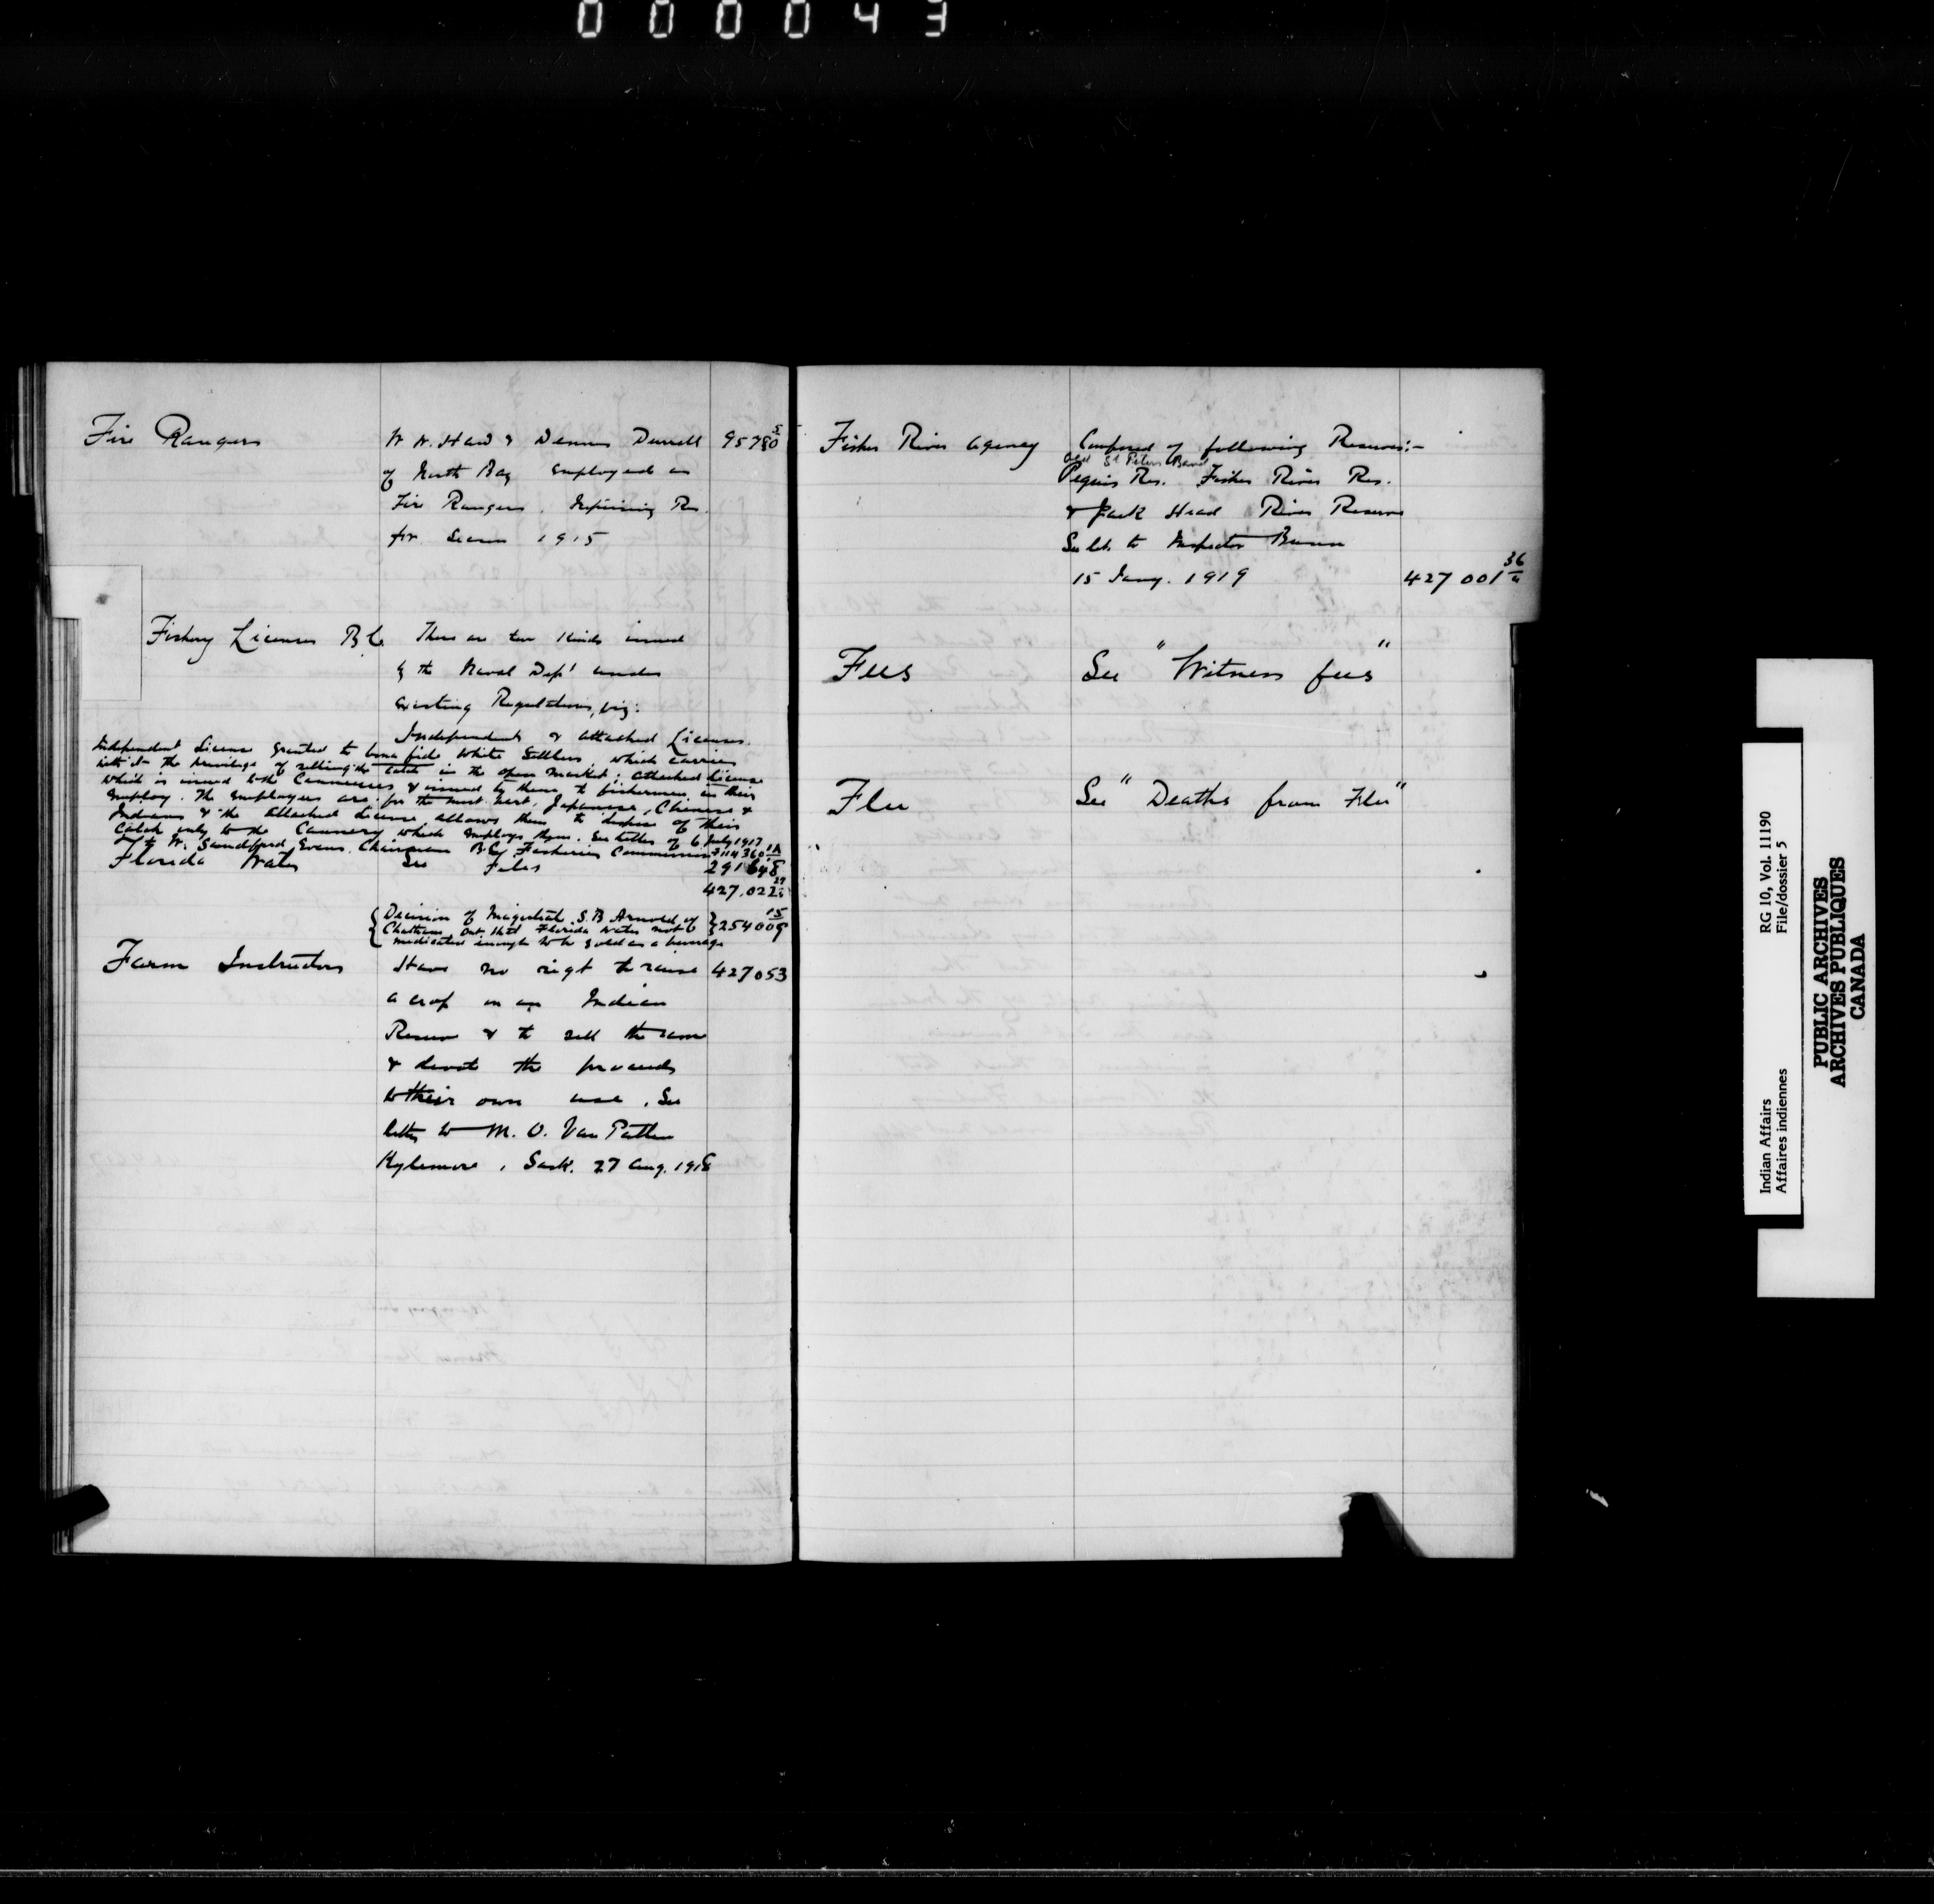 000043
Fire Rangers W. H. Haw & Dennis Durrell 95780 5
of North Bay employed as
Fire Rangers. Nipissing Res.
for Season 1915
Fishery Licenses B.C. There are two kinds issued
by the Naval Dept under
existing Regulations, viz:
Independent & attached Licenses.
Independent License granted to bona fide White Settlers, which carries
with it the privilege of selling the catch in the open market; attached license
which is issued to the Canneries, & issued by them to fishermen in their
employ. The employees are for the most part, Japanese, Chinese &
Indians & the attached license allows them to dispose of their
catch only to the Cannery which employs them. See letter of 6 July 1917
to W. Sandford Evans. Chairman B.C. Fisheries Commission 114360 1A
Florida Water See Files 291648
427.022 27
{Decision of Magistrate S. B. Arnold of} 254009 15
Chatham, Ont. that Florida Water not
medicated enough to be sold as a beverage
Farm Instructors Have no rigt to raise 427053
a crop on an Indian
Reserve & to sell the same
& devote the proceeds
to their own use. See
letter to M. O. Van Patten
Kylemore, Sask. 27 Aug. 1918
Fisher River Agency Composed of following Reserves:-
old St Peters Band
Peguis Res. Fisher River Res.
& Jack Head River Reserve
See let. to Inspector Bunn
15 Jany. 1919 427001 36
Fees See "Witness fees"
Flu See "Deaths from Flu"
Indian Affairs RG 10, Vol. 11190
Affaires indiennes File/dossier 5
PUBLIC ARCHIVES
ARCHIVES PUBLIQUES
CANADA